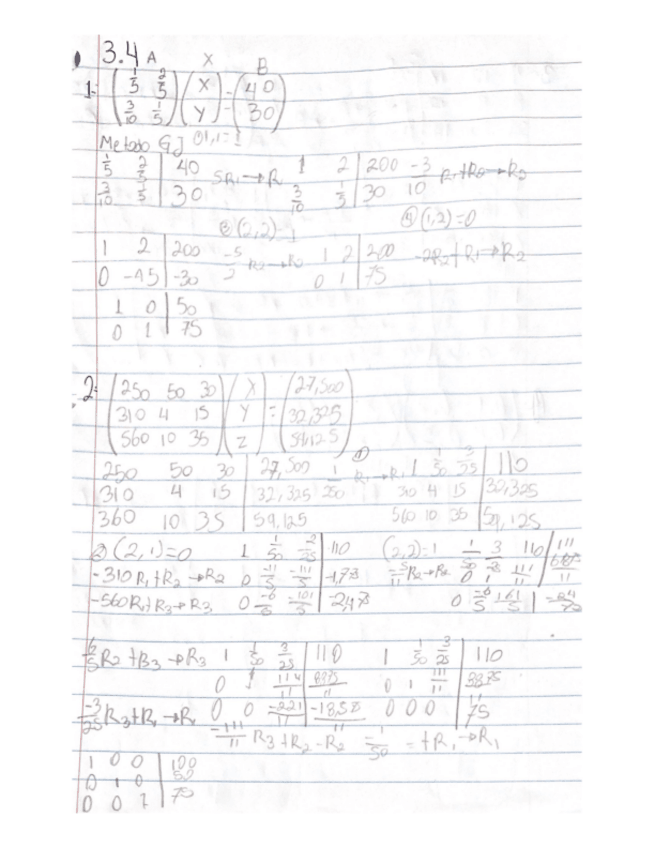 3.4 A X B
1. (1/5 2/5) (X) = (40)
(3/10 1/5) (Y) = (30)
Metodo GJ 0(1,1)=1
1/5 2/5 | 40 5R1→R 1 2 | 200 -3/10 R1+R2→R2
3/10 1/5 | 30 3/10 1/5 | 30
(2,2)=1 (1,2)=0
1 2 | 200 -5/2 R2→R2 1 2 | 200 -2R2+R1→R2
0 -45 | -30 0 1 | 75
1 0 | 50
0 1 | 75
2. (250 50 30) (X) (27,500)
(310 4 15) (Y) = (32,325)
(560 10 35) (Z) (59,125)
250 50 30 | 27,500 1/250 R1→R1 1 1/50 3/25 | 110
310 4 15 | 32,325 310 4 15 | 32,325
360 10 35 | 59,125 560 10 35 | 59,125
② (2,1)=0 1 1/50 3/25 | 110 (2,2)=1 1/50 3/25 110
-310R1+R2→R2 0 -11/5 -111/5 -5/11 R2→R2 0 1 111/11
-560R1+R3→R3 0 -6/5 -101/5 0 -6/5 161/5
6/5 R2+R3→R3 1 1/50 3/25 | 110 1 1/50 3/25 | 110
0 1 114/11 | 8875/11 0 1 111/11 | 3875
-3/25 R3+R1→R1 0 0 -221/11 0 0 0 | 75
-111/11 R3+R2-R2 -1/50 = +R1→R1
1 0 0 | 100
0 1 0 | 50
0 0 1 | 75